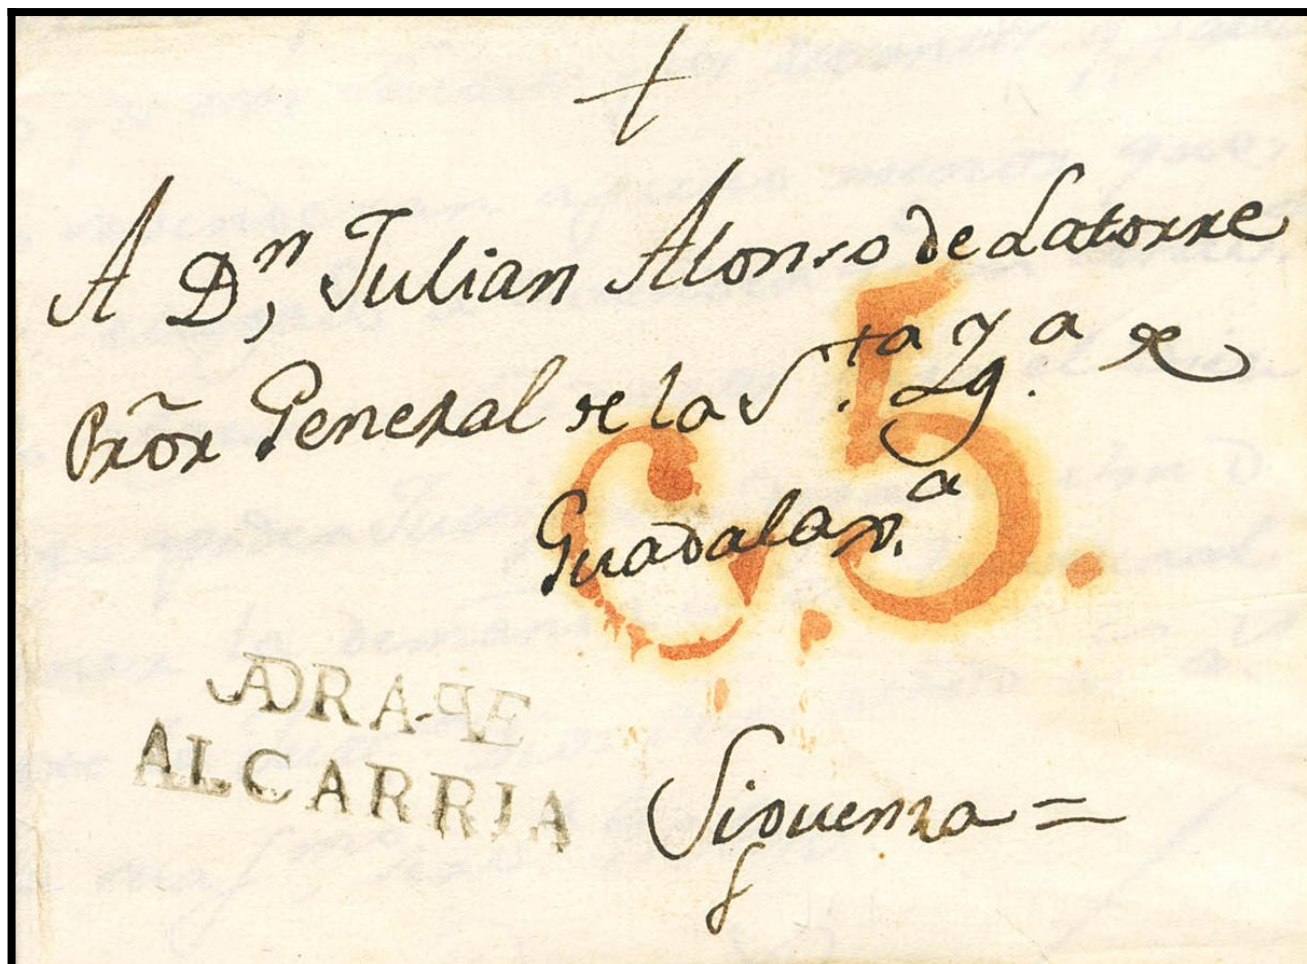 A Dn, Julian Alonso de Latorre
Pror General de la Sta Yga de
Guadalaxa
5.
ADRA-QE
ALCARRIA
Siguenza =